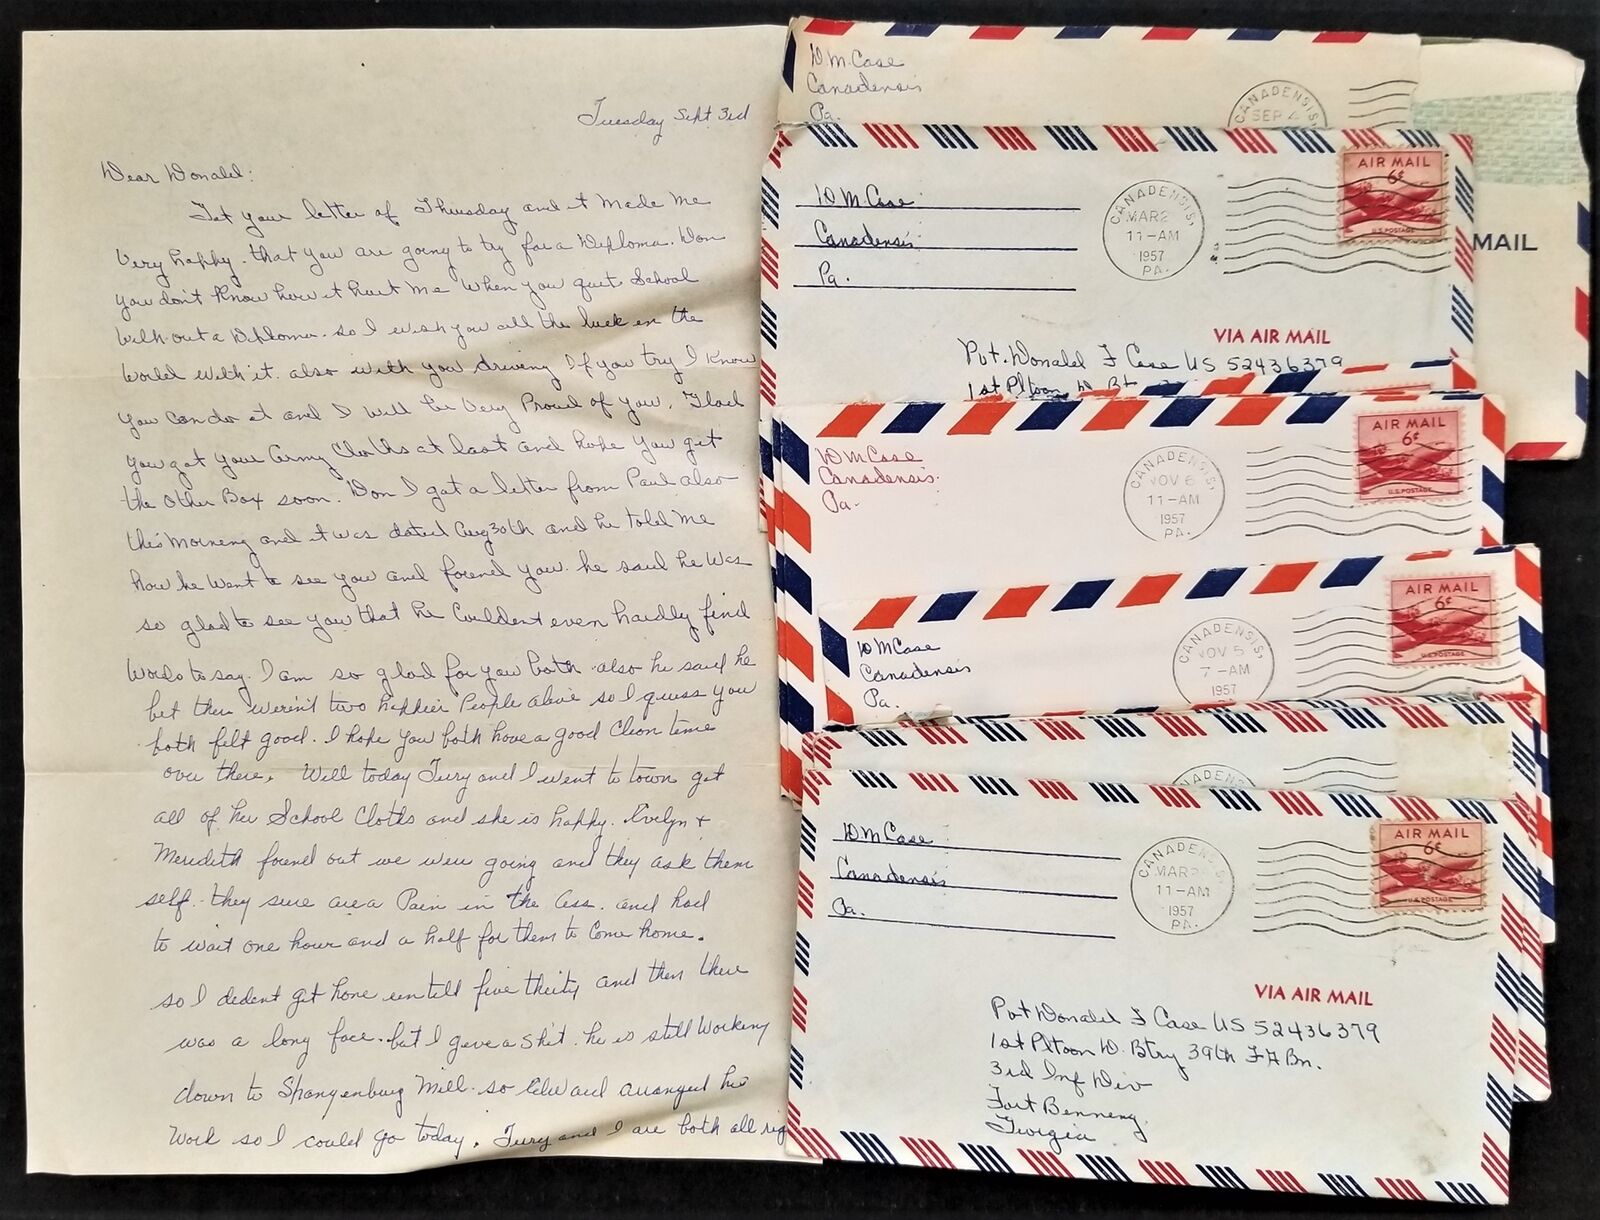 Tuesday Sept 3rd
Dear Donald:
Got your letter of Thursday and it made me
very happy. that you are going to try for a Diploma. Don
you don't know how it hurt me when you quit School
without a Diploma. so I wish you all the luck in the
world with it. also with you driving If you try I know
you can do it and I will be very Proud of you. Glad
you got your army Cloths at last and hope you get
the other Box soon. Don I got a letter from Paul also
this morning and it was dated Aug 30th and he told me
how he went to see you and found you. he said he was
so glad to see you that he couldent even hardly find
words to say. I am so glad for you both. also he said he
bet there weren't two happier People alive so I guess you
both felt good. I hope you both have a good Clean time
over there. Will today Tury and I went to town get
all of her School Cloths and she is happy. Evelyn +
Meredith found out we were going and they ask them
self. they sure are a Pain in the Ass. and had
to wait one hour and a half for them to Come home.
so I dident get home untill five thirty and then there
was a long face. but I give a shit. he is still working
down to Spangenburg Mill. so Edward arranged his
work so I could go today. Tury and I are both all rig
D M Case
Canadensis
Pa.
CANADENSIS,
SEP 4
D M Case
Canadensis
Pa.
CANADENSIS,
MAR 2
11-AM
1957
PA.
AIR MAIL
6¢
U.S. POSTAGE
MAIL
VIA AIR MAIL
Pvt. Donald F Case US 52436379
1st Pltoon D. Bt
D M Case
Canadensis.
Pa.
CANADENSIS,
NOV 6
11-AM
1957
PA.
AIR MAIL
6¢
U.S. POSTAGE
D M Case
Canadensis
Pa.
CANADENSIS,
NOV 5
7-AM
1957
AIR MAIL
6¢
U.S. POSTAGE
NADENS
D M Case
Canadensis
Pa.
CANADENSIS,
MAR
11-AM
1957
PA.
AIR MAIL
6¢
U.S. POSTAGE
VIA AIR MAIL
Pvt Donald F Case US 52436379
1st Pltoon D. Btry 39th FA Bn.
3rd Inf Div
Fort Benneng
Giorgia